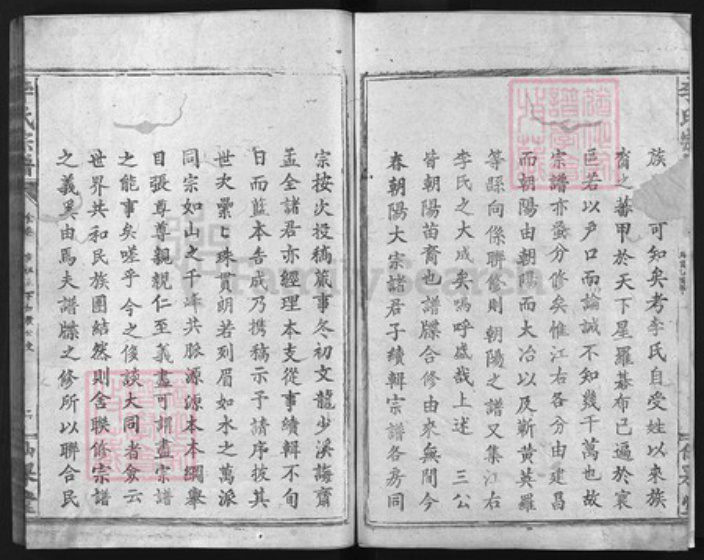 族　可知矣考李氏自受姓以來族
裔之蕃甲於天下星羅棊布已遍於寰
區若以户口而論誠不知幾千萬也故
宗譜亦彙分修矣惟江右各分由建昌
而朝陽由朝陽而大冶以及靳黄英羅
等縣向係聯修則朝陽之譜又集江右
李氏之大成矣嗚呼盛哉上述　三公
皆朝陽苗裔也譜牒合修由來無間今
春朝陽大宗諸君子續輯宗譜各房同
宗按次投稿蕆事冬初文龍少溪海齋
孟全諸君亦經理本支從事續輯不旬
日而藍本告成乃携稿示予請序披其
世次纍纍珠貫朗若列眉如水之萬派
同宗如山之千峰共脈源源本本綱舉
目張尊尊親親仁至義盡可謂盡宗譜
之能事矣嗟乎今之侈談大同者僉云
世界共和民族團結然則舍聯修宗譜
之義奚由焉夫譜牒之修所以聯合民
李氏宗譜
六
仙果堂
FamilySearch